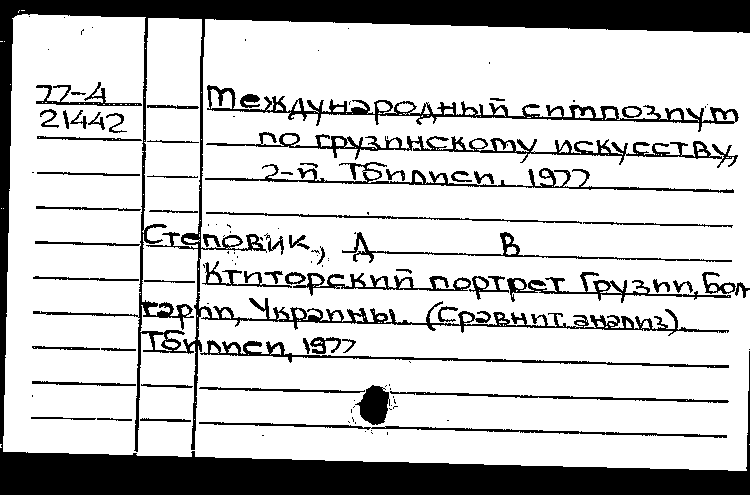 77-4
21442
Международный симпозиум
по грузинскому искусству,
2-й. Тбилиси. 1977
Степовик, Д В
Ктиторский портрет Грузии, Бол
гарии, Украины. (Сравнит. анализ).
Тбилиси, 1977